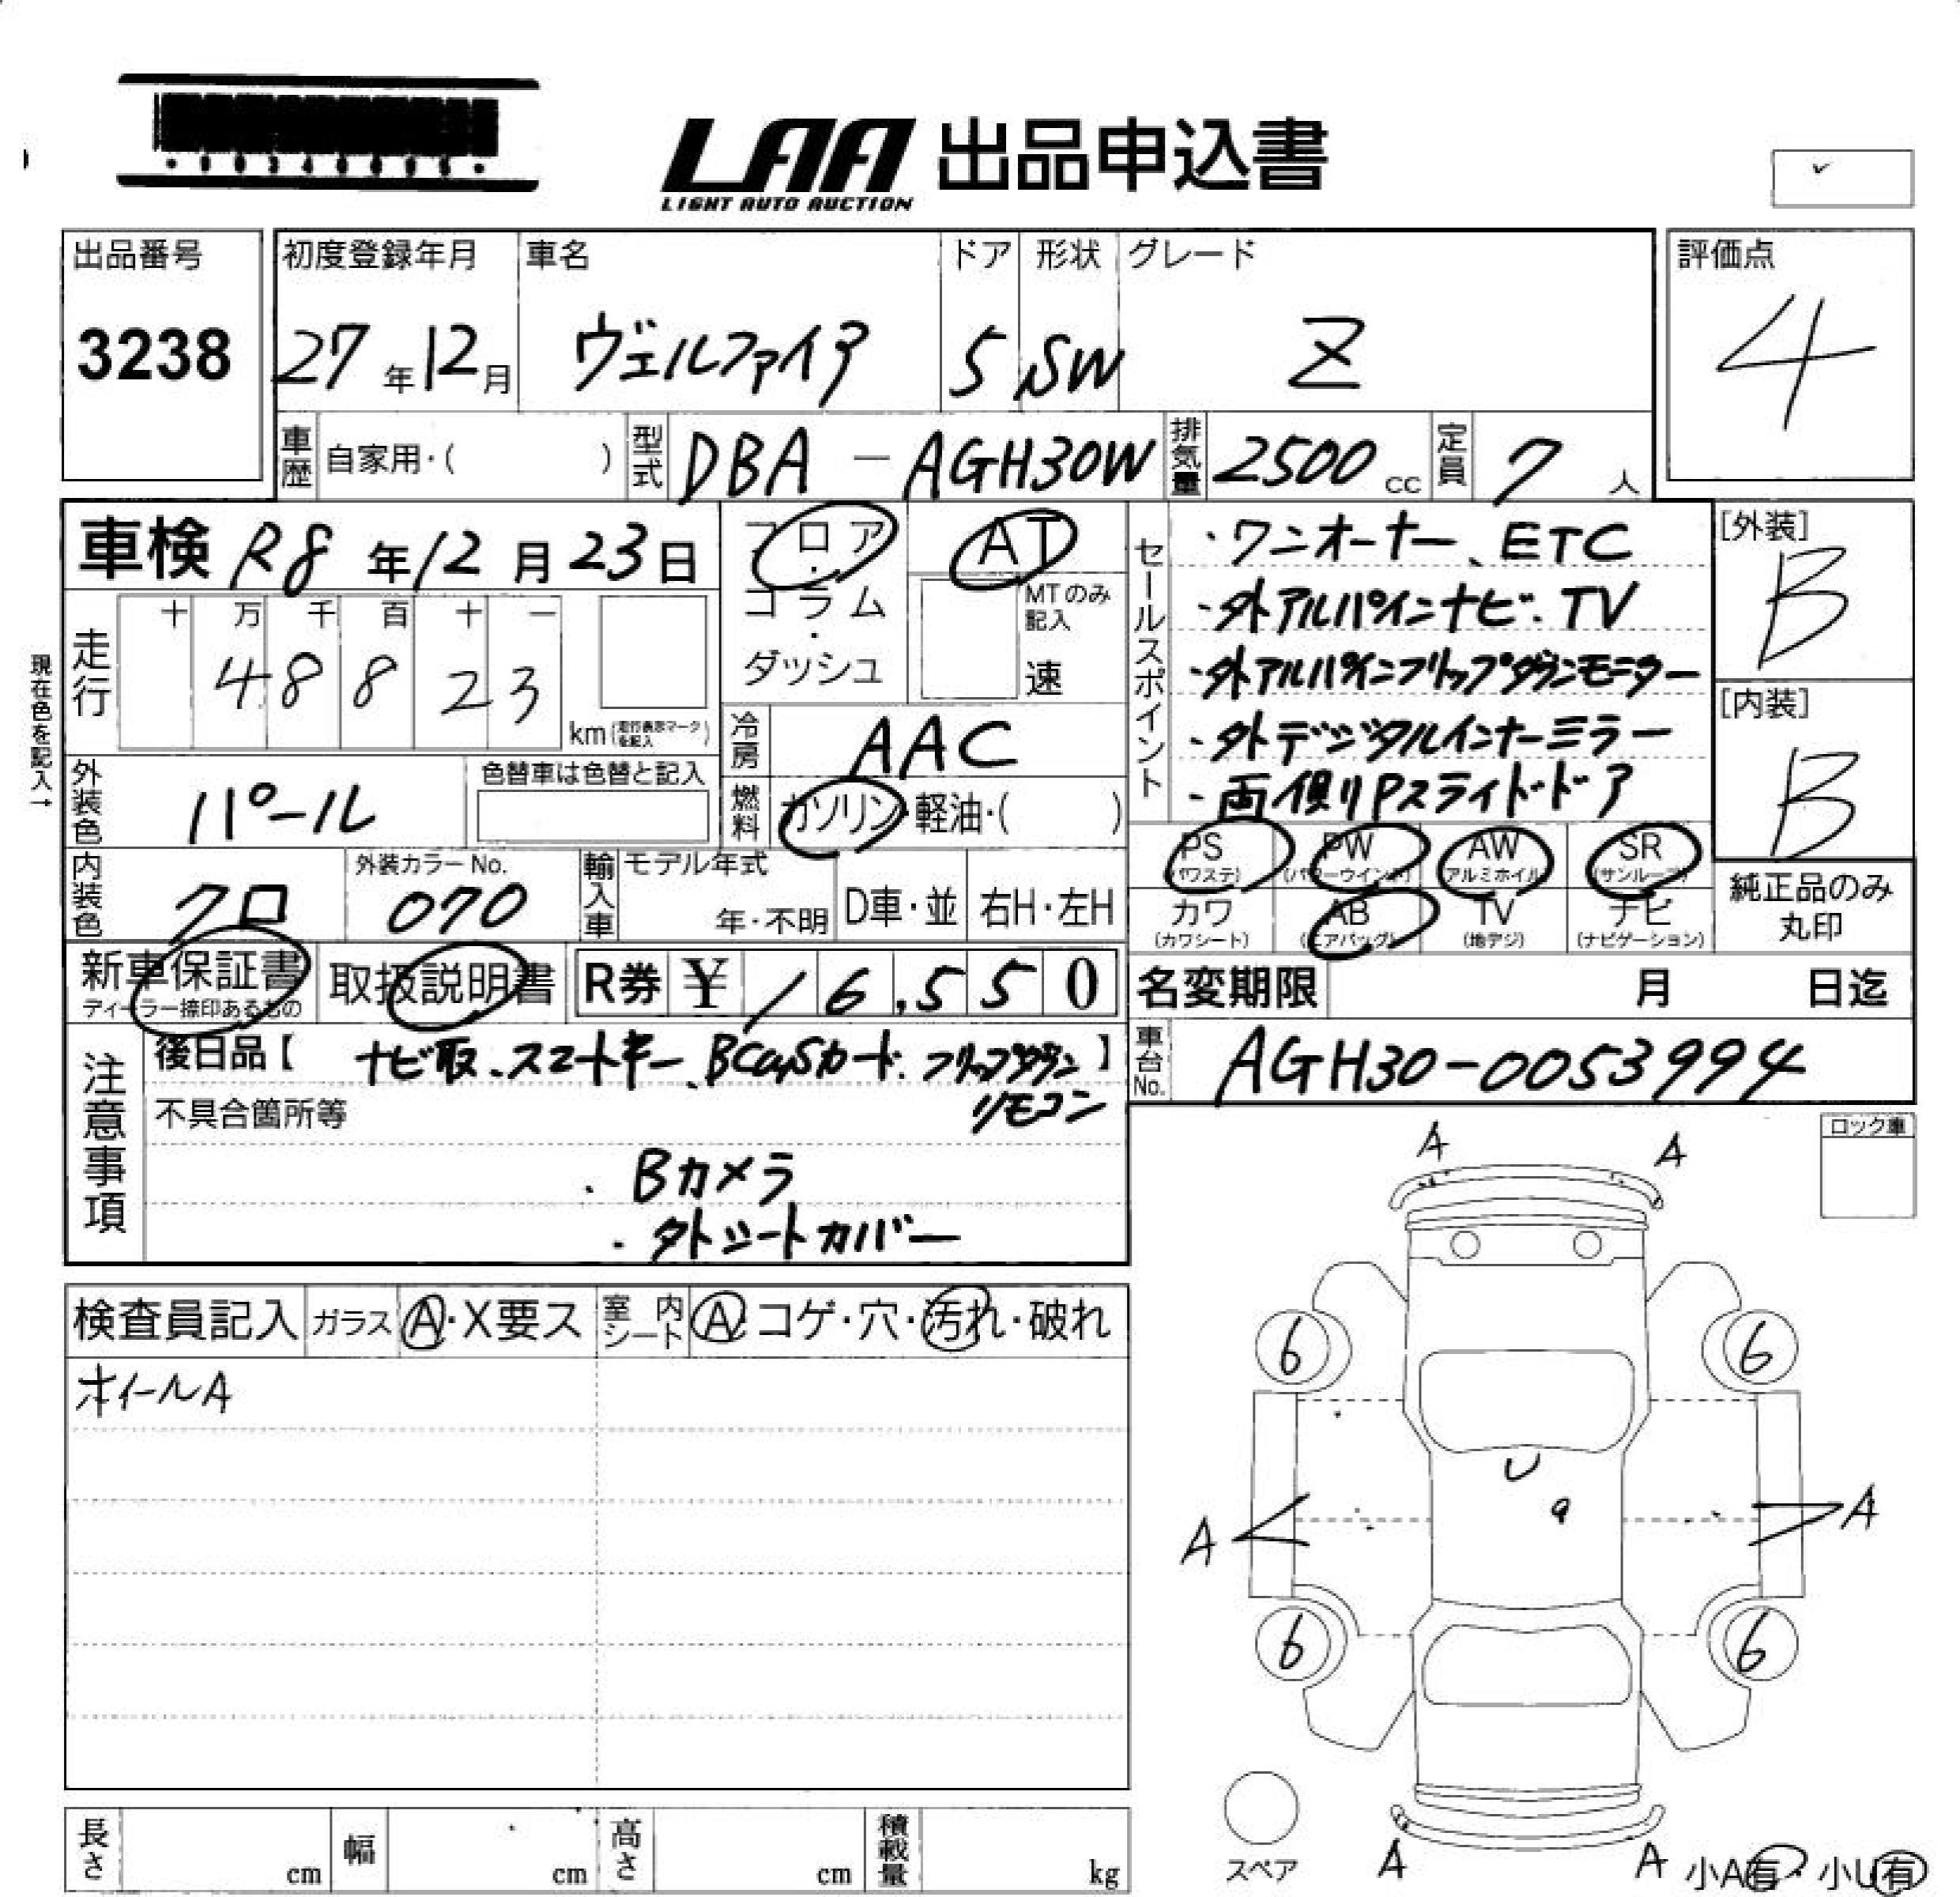 LAA 出品申込書
LIGHT AUTO AUCTION
出品番号
3238
初度登録年月
27年12月
車名
ヴェルファイア
ドア
5
形状
SW
グレード
Z
評価点
4
車歴 自家用・( )
型式 DBA - AGH30W
排気量 2500 cc
定員 7 人
車検 R8年12月23日
フロア・コラム・ダッシュ
AT
MTのみ記入
速
セールスポイント
・ワンオーナー、ETC
・外アルパインナビ・TV
・外アルパインフリップダウンモニター
・外デジタルインナーミラー
・両側Pスライドドア
[外装]
B
[内装]
B
現在色を記入→
走行
十 万 千 百 十 一
4 8 8 2 3
km(走行表示マークを記入)
冷房 AAC
外装色 パール
色替車は色替と記入
燃料 ガソリン・軽油・( )
PS (パワステ) PW (パワーウインド) AW (アルミホイル) SR (サンルーフ)
カワ (カワシート) AB (エアバッグ) TV (地デジ) ナビ (ナビゲーション)
純正品のみ丸印
内装色 クロ
外装カラーNo.
070
輸入車
モデル年式
年・不明
D車・並
右H・左H
新車保証書
ディーラー捺印あるもの
取扱説明書
R券 ¥ 16,550
名変期限 月 日迄
車台No. AGH30-0053994
注意事項
後日品【 ナビ取、スマートキー、BCasカード、フリップダウン 】
リモコン
不具合箇所等
・Bカメラ
・外シートカバー
ロック車
A A
検査員記入 ガラス A・X要ス 室内シート A コゲ・穴・汚れ・破れ
ホイールA
6 6
U
9
A A
6 6
スペア
A A
小A有・小U有
長さ cm 幅 cm 高さ cm 積載量 kg